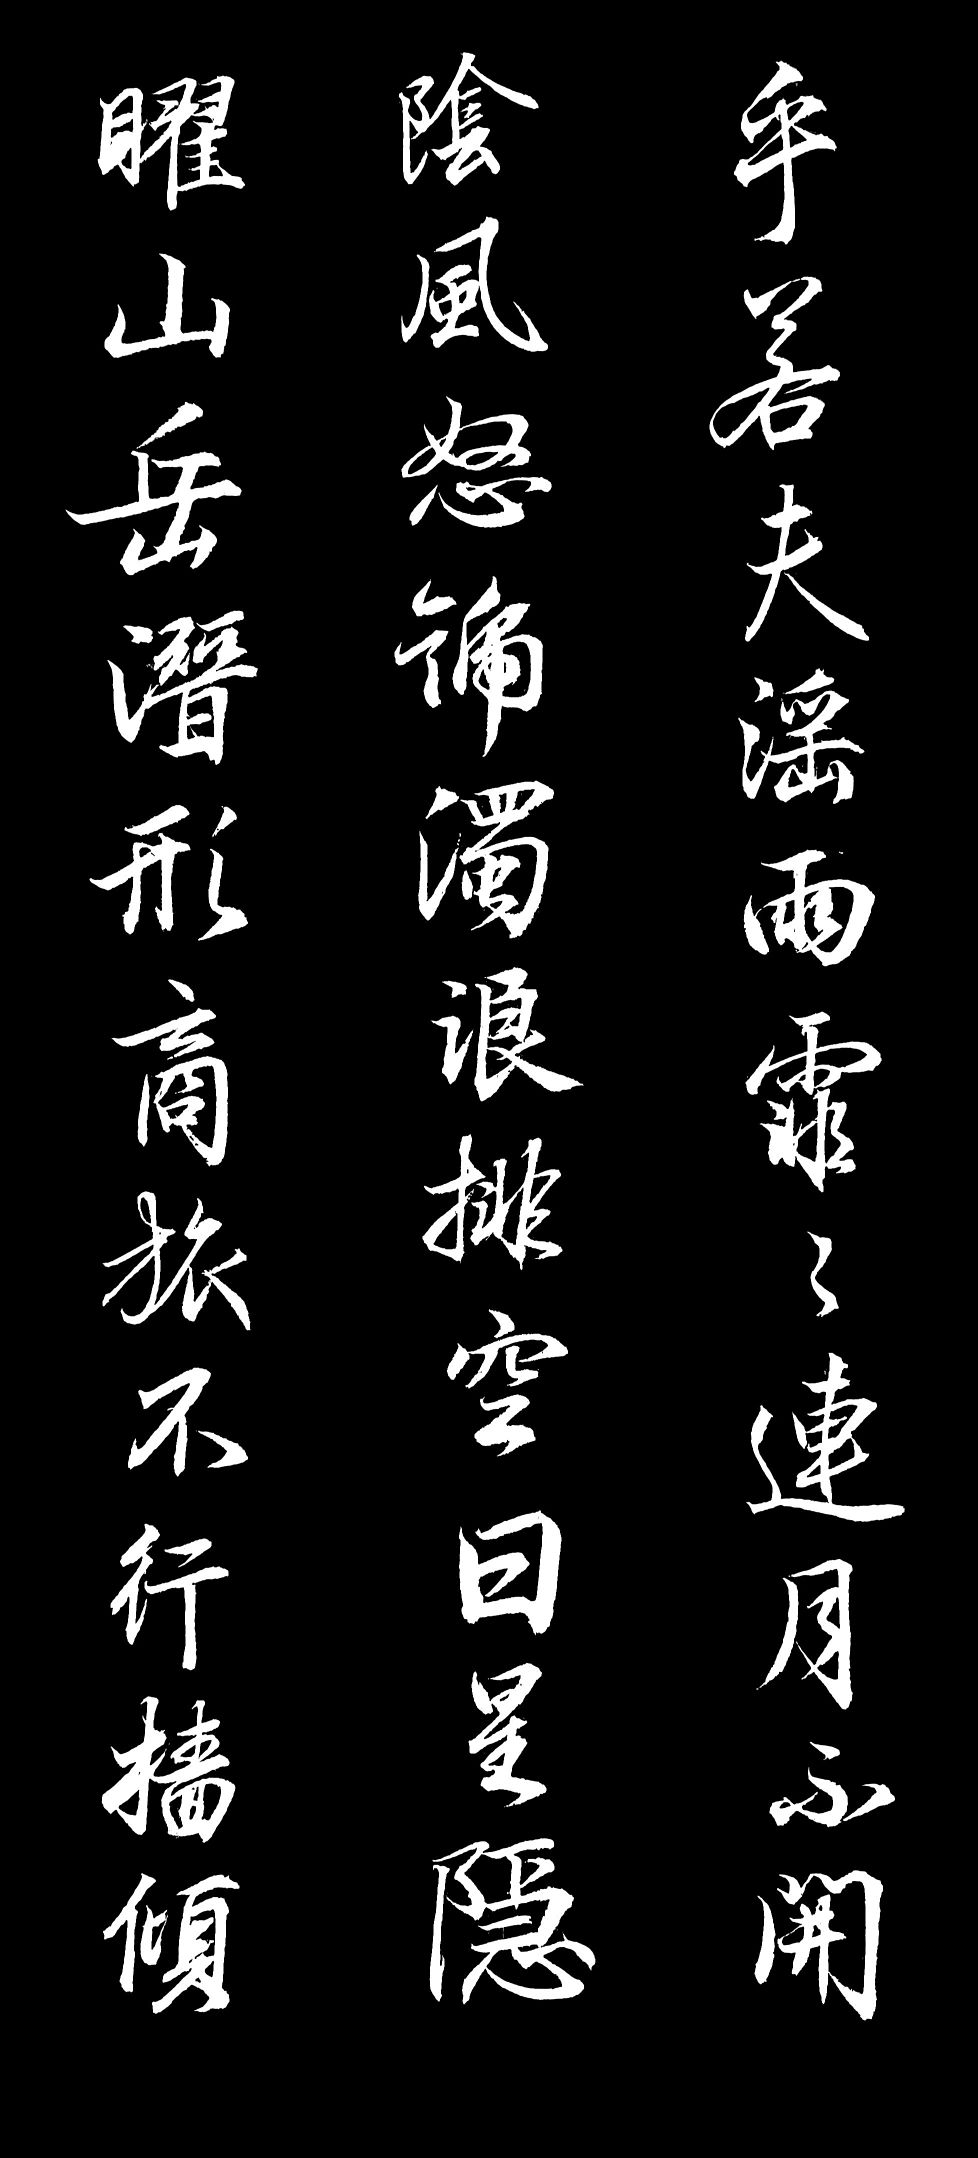 乎若夫淫雨霏〻連月不開
陰風怒號濁浪排空日星隱
曜山岳潛形商旅不行檣傾